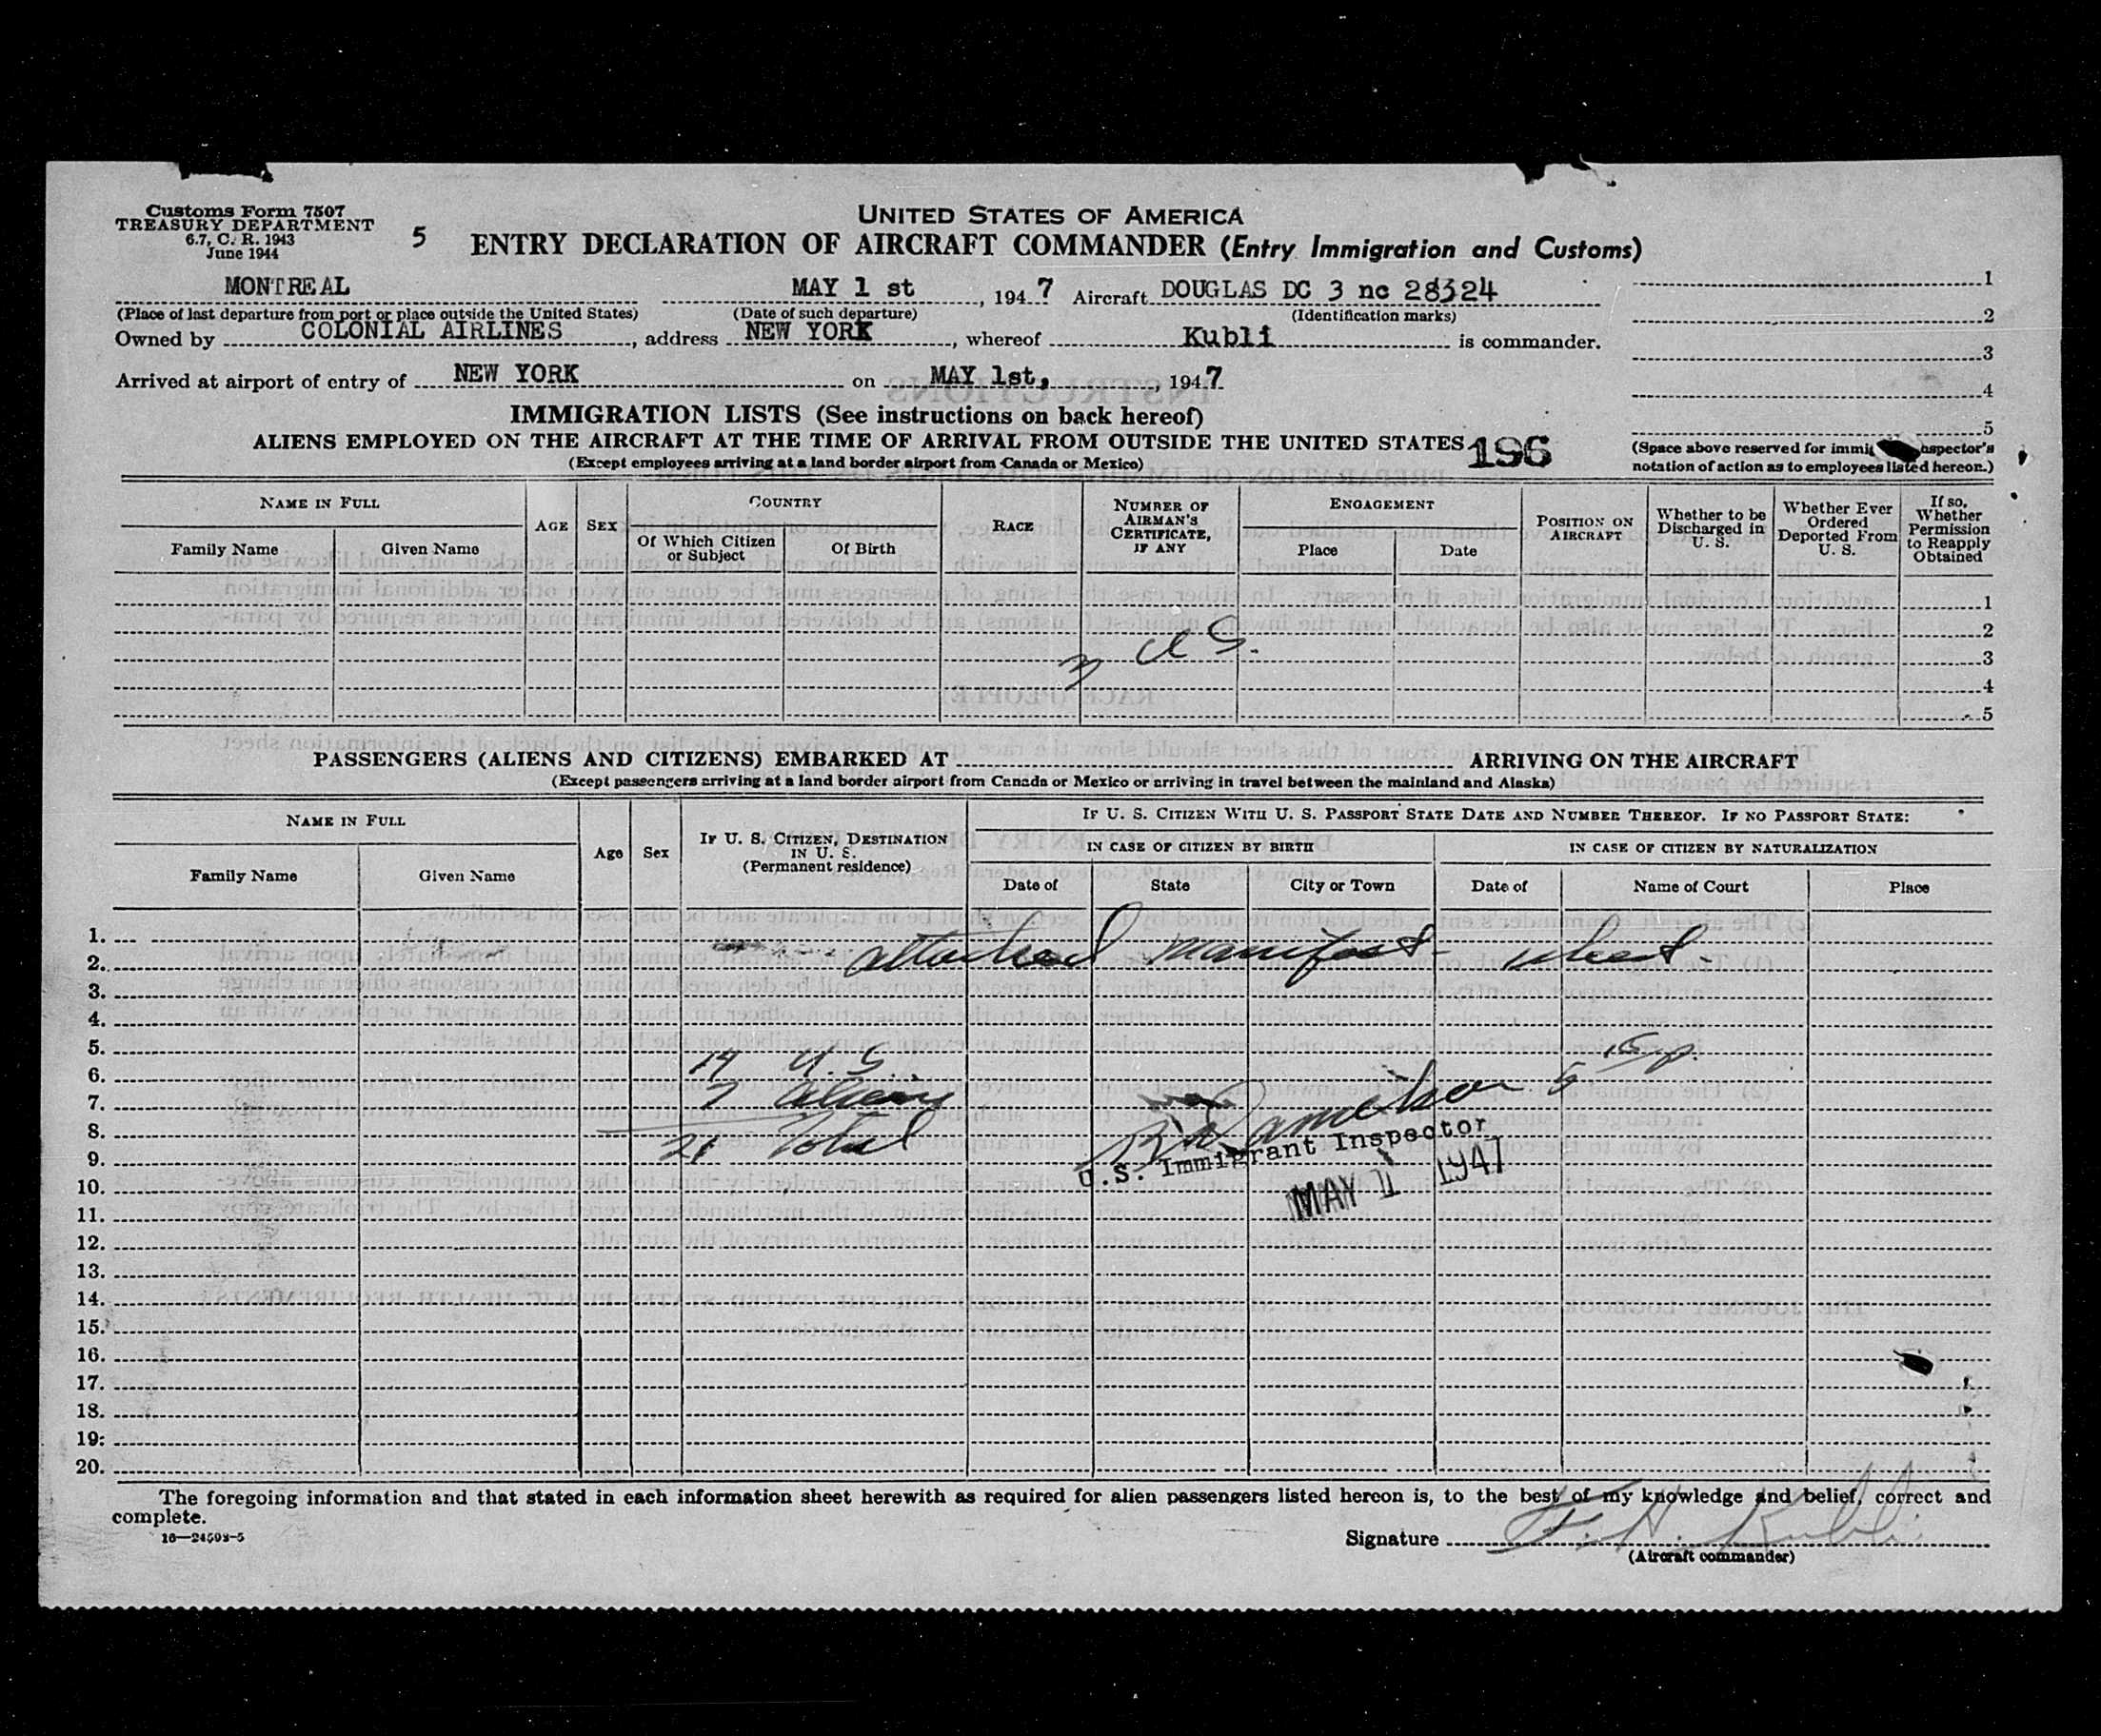 Customs Form 7507
TREASURY DEPARTMENT
6.7, C. R. 1943
June 1944
5
UNITED STATES OF AMERICA
ENTRY DECLARATION OF AIRCRAFT COMMANDER (Entry Immigration and Customs)
MONTREAL MAY 1 st, 1947 Aircraft DOUGLAS DC 3 nc 28324
(Place of last departure from port or place outside the United States) (Date of such departure) (Identification marks)
Owned by COLONIAL AIRLINES, address NEW YORK, whereof Kubli is commander.
Arrived at airport of entry of NEW YORK on MAY 1st, , 1947
1
2
3
4
5
IMMIGRATION LISTS (See instructions on back hereof)
ALIENS EMPLOYED ON THE AIRCRAFT AT THE TIME OF ARRIVAL FROM OUTSIDE THE UNITED STATES 196
(Except employees arriving at a land border airport from Canada or Mexico)
(Space above reserved for immig inspector's
notation of action as to employees listed hereon.)
NAME IN FULL
Family Name Given Name
AGE SEX
COUNTRY
Of Which Citizen or Subject Of Birth
RACE
NUMBER OF AIRMAN'S CERTIFICATE, IF ANY
ENGAGEMENT
Place Date
POSITION ON AIRCRAFT
Whether to be Discharged in U. S.
Whether Ever Ordered Deported From U. S.
If so, Whether Permission to Reapply Obtained
1
2
3
4
5
3 US.
PASSENGERS (ALIENS AND CITIZENS) EMBARKED AT ARRIVING ON THE AIRCRAFT
(Except passengers arriving at a land border airport from Canada or Mexico or arriving in travel between the mainland and Alaska)
NAME IN FULL
Family Name Given Name
Age Sex
IF U. S. CITIZEN, DESTINATION IN U. S.
(Permanent residence)
IF U. S. CITIZEN WITH U. S. PASSPORT STATE DATE AND NUMBER THEREOF. IF NO PASSPORT STATE:
IN CASE OF CITIZEN BY BIRTH IN CASE OF CITIZEN BY NATURALIZATION
Date of State City or Town Date of Name of Court Place
1.
2. attached manifest-
3.
4.
5. 14 U.S.
6.
7. 7 aliens
8.
9. 21 Total
U.S. Immigrant Inspector
10. MAY 1 1947
11.
12.
13.
14.
15.
16.
17.
18.
19.
20.
The foregoing information and that stated in each information sheet herewith as required for alien passengers listed hereon is, to the best of my knowledge and belief, correct and
complete.
16—24598-5
Signature F. H. Kubli
(Aircraft commander)